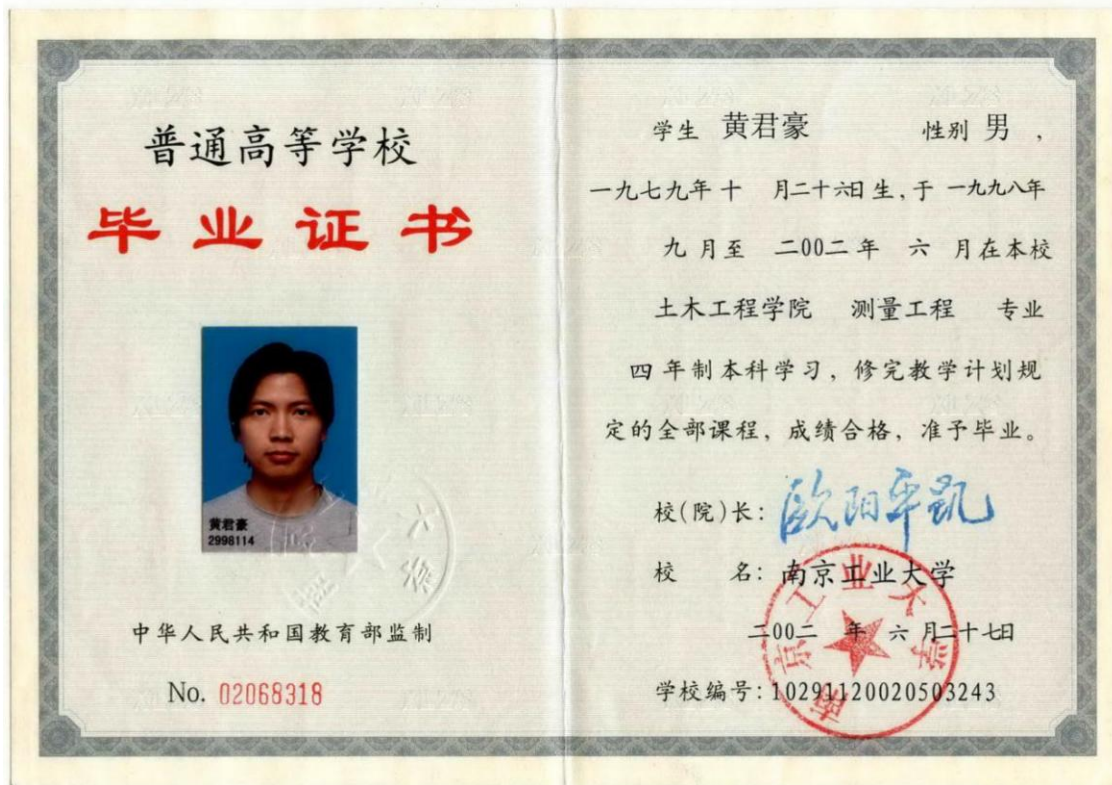 普通高等学校
毕业证书
黄君豪
2998114
中华人民共和国教育部监制
No. 02068318
学生 黄君豪 性别 男,
一九七九年十 月二十六日生,于 一九九八年
九月至 二00二年 六 月在本校
土木工程学院 测量工程 专业
四年制本科学习,修完教学计划规
定的全部课程,成绩合格,准予毕业。
校(院)长: 欧阳平凯
校 名: 南京工业大学
二00二 年 六 月二十七日
学校编号: 10291120020503243
南京工业大学